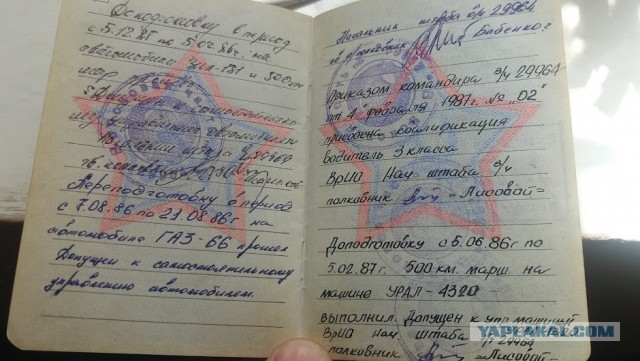 Доподготовку в период
с 5.12.85 по 5.02.86г. на
автомобиле ЗИЛ-131 и 500км
марш
Допущен к самостоятель-
управлению автомобилем
Начальник штаба в/ч 29964
Переподготовку в период
с 7.08.86 по 21.08.86г на
автомобиле ГАЗ-66 прошел
Допущен к самостоятельному
управлению автомобилем.
Начальник штаба в/ч 29964
полковник Бабенко
Приказом командира в/ч 29964
от 4 "февраля 1987г. № "02"
присвоена квалификация
водитель 3 класса
ВРИО Нач штаба в/ч
полковник = Лисовай =
Доподготовку с 5.06.86г по
5.02.87г. 500 км. марш на
машине УРАЛ-4320
выполнил. Допущен к упр машиной
ВРИО Нач штаба в/ч 29964
полковник = Лисовай =
YAPLAKAL.COM